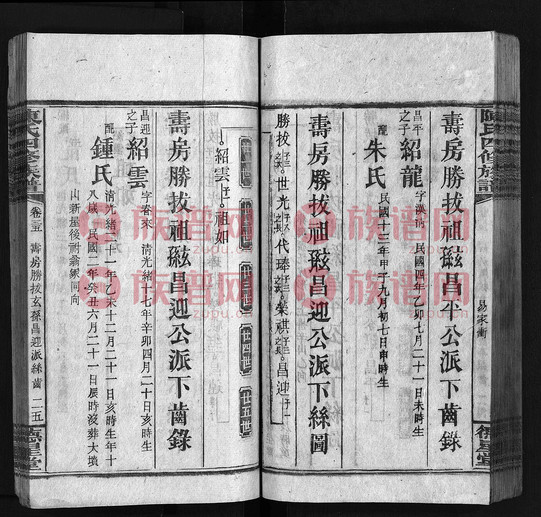 陳氏四修族譜
德星堂
易家衝
壽房勝拔祖玆昌平公派下齒錄
昌平之子紹龍 字漢南 民國四年乙卯七月二十一日未時生
配朱氏 民國十三年甲子九月初七日申時生
壽房勝拔祖玆昌迎公派下絲圖
勝拔 世光 代瑧 榮祺 昌迎
廿四世 廿五世
紹雲 祖如
壽房勝拔祖玆昌迎公派下齒錄
昌迎之子紹雲 清光緒十七年辛卯四月二十日亥時生
配鍾氏 清光緒二十一年乙未十二月二十一日亥時生年十
八歲 民國二年癸丑六月二十一日辰時沒葬大墳
山新屋後
陳氏四修族譜 壽房勝拔玄孫昌迎派絲齒 二五 德星堂
族谱网
zopu.com